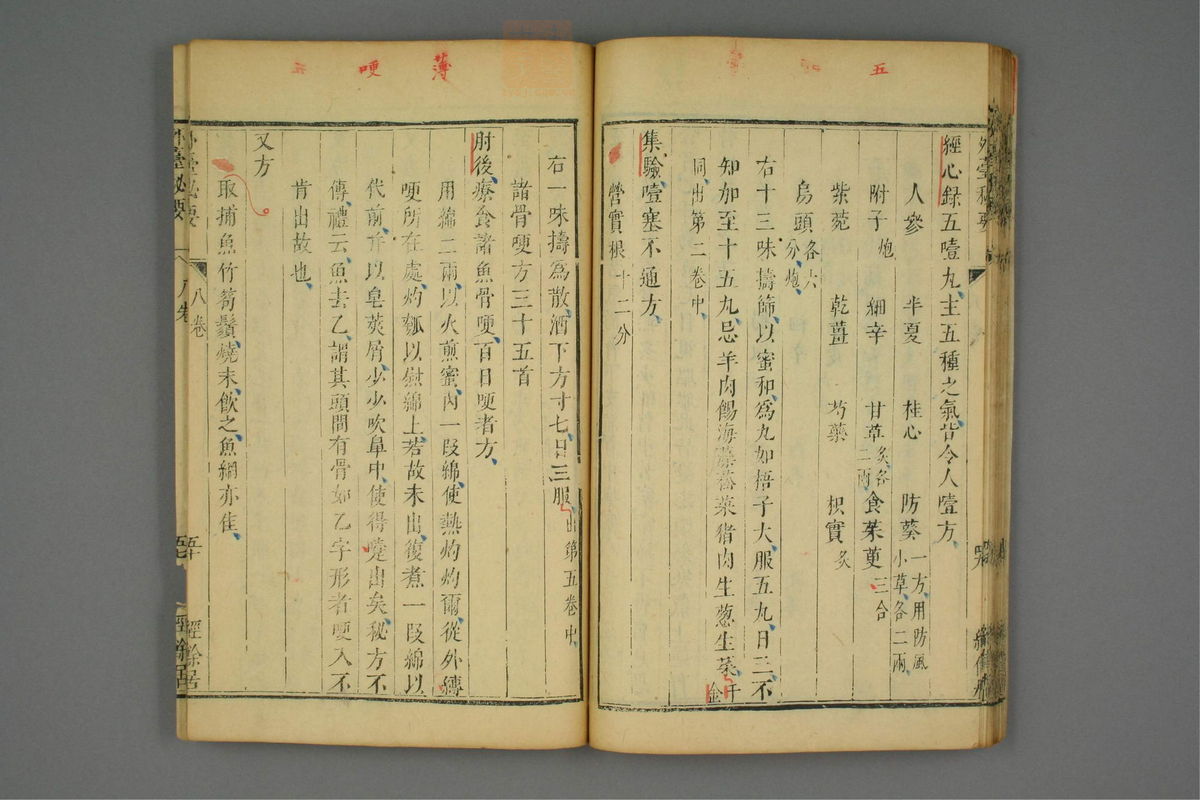 五
經心録五噎丸主五種之氣皆令人噎方
人參 半夏 桂心 防葵一方用防風小草各二兩
附子炮 細辛 甘草炙各二兩 食茱萸三合
紫菀 乾薑 芍藥 枳實炙
烏頭各六分炮
右十三味擣篩以蜜和爲丸如梧子大服五丸日三不
知加至十五丸忌羊肉餳海藻菘菜猪肉生葱生菜千金
同出第二卷中
集驗噎塞不通方
營實根十二分
薄 哽 五
右一味擣爲散酒下方寸匕日三服出第五卷中
諸骨哽方三十五首
肘後療食諸魚骨哽百日哽者方
用綿二兩以火煎蜜內一段綿使熱灼灼爾從外縳
哽所在處灼瓠以熨綿上若故未出復煮一段綿以
代前并以皂莢屑少少吹鼻中使得嚏出矣秘方不
傳禮云魚去乙謂其頭間有骨如乙字形者哽入不
肯出故也
又方
取捕魚竹笱鬚燒末飲之魚網亦佳
外臺秘要 八卷 經餘居